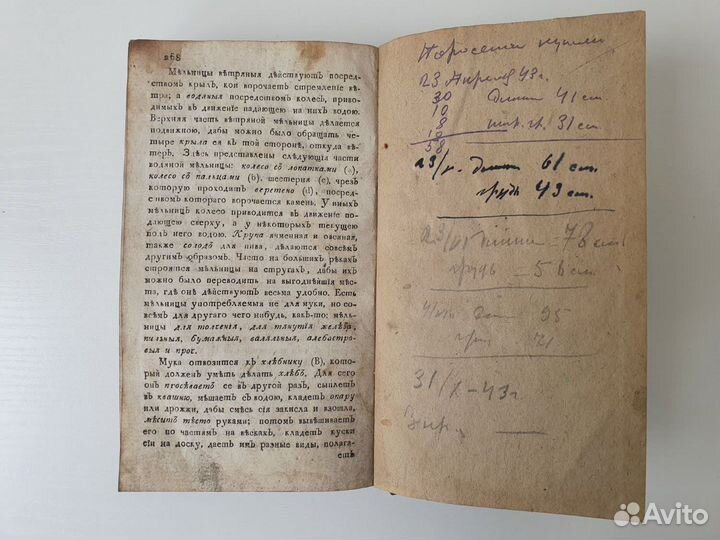 268
Мѣльницы вѣтряныя дѣйствуютъ посред-
ствомъ крылъ, кои ворочаетъ стремленіе вѣ-
тра; а водяныя посредствомъ колесъ, приво-
димыхъ въ движеніе падающею на нихъ водою.
Верхняя часть вѣтряной мѣльницы дѣлается
подвижною, дабы можно было обращать че-
тыре крыла ея къ той сторонѣ, откуда вѣ-
теръ. Здѣсь представлены слѣдующія части
водяной мѣльницы: колесо съ лопатками (а),
колесо съ пальцами (b), шестерня (c), чрезъ
которую проходитъ веретено (d), посред-
ствомъ котораго ворочается камень. У иныхъ
мѣльницъ колесо приводится въ движеніе па-
дающею сверху, а у нѣкоторыхъ текущею
подъ него водою. Крупа ячменная и овсяная,
также солодъ для пива, дѣлаются совсѣмъ
другимъ образомъ. Часто на большихъ рѣкахъ
строятся мѣльницы на стругахъ, дабы ихъ
можно было переводить на выгоднѣйшія мѣ-
ста, гдѣ онѣ дѣйствуютъ весьма удобно. Есть
мѣльницы употребляемыя не для муки, но со-
всѣмъ для другаго чего нибудь, какъ-то: мѣль-
ницы для толченія, для танутія желѣза,
пильныя, бумажныя, валяльныя, алебастро-
выя и проч.
Мука отвозится къ хлѣбнику (B), кото-
рый долженъ умѣть дѣлать хлѣбъ. Для сего
онъ просѣваетъ ее въ другой разъ, сыплетъ
въ квашню, мѣшаетъ съ водою, кладетъ опару
или дрожжи, дабы смѣсь сія закисла и взошла,
мѣситъ тѣсто руками; потомъ вывѣшиваетъ
его по частямъ на вѣскахъ, кладетъ куски
сіи на доску, даетъ имъ разные виды, полага-
етъ
Поросенка купили
23 Апреля 43 г.
30 длина 41 см
10
18 31 см.
58
23/ длина 61 см.
грудь 43 см.
23/ длина - 78 см
грудь - 56 см
95
71
31/X - 43 г
Avito